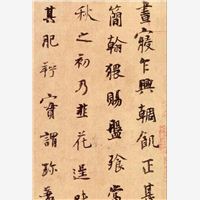 晝寢乍興輖飢正甚
簡翰猥賜盤飧當
秋之初乃韭花逞
其肥羜實謂珍羞